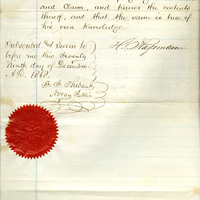 and Claim, and knows the contents
thereof, and that the same is true of
his own knowledge.
Subscribed and Sworn to
before me this Twenty
Ninth day of December
A.D. 18
Notary Public